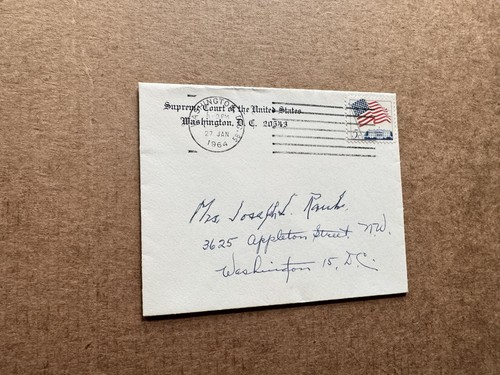 Supreme Court of the United States
Washington, D. C. 20543
WASHINGTON
PM
27 JAN
1964
Mrs. Joseph L. Rauh.
3625 Appleton Street. N.W.
Washington 15, D.C.